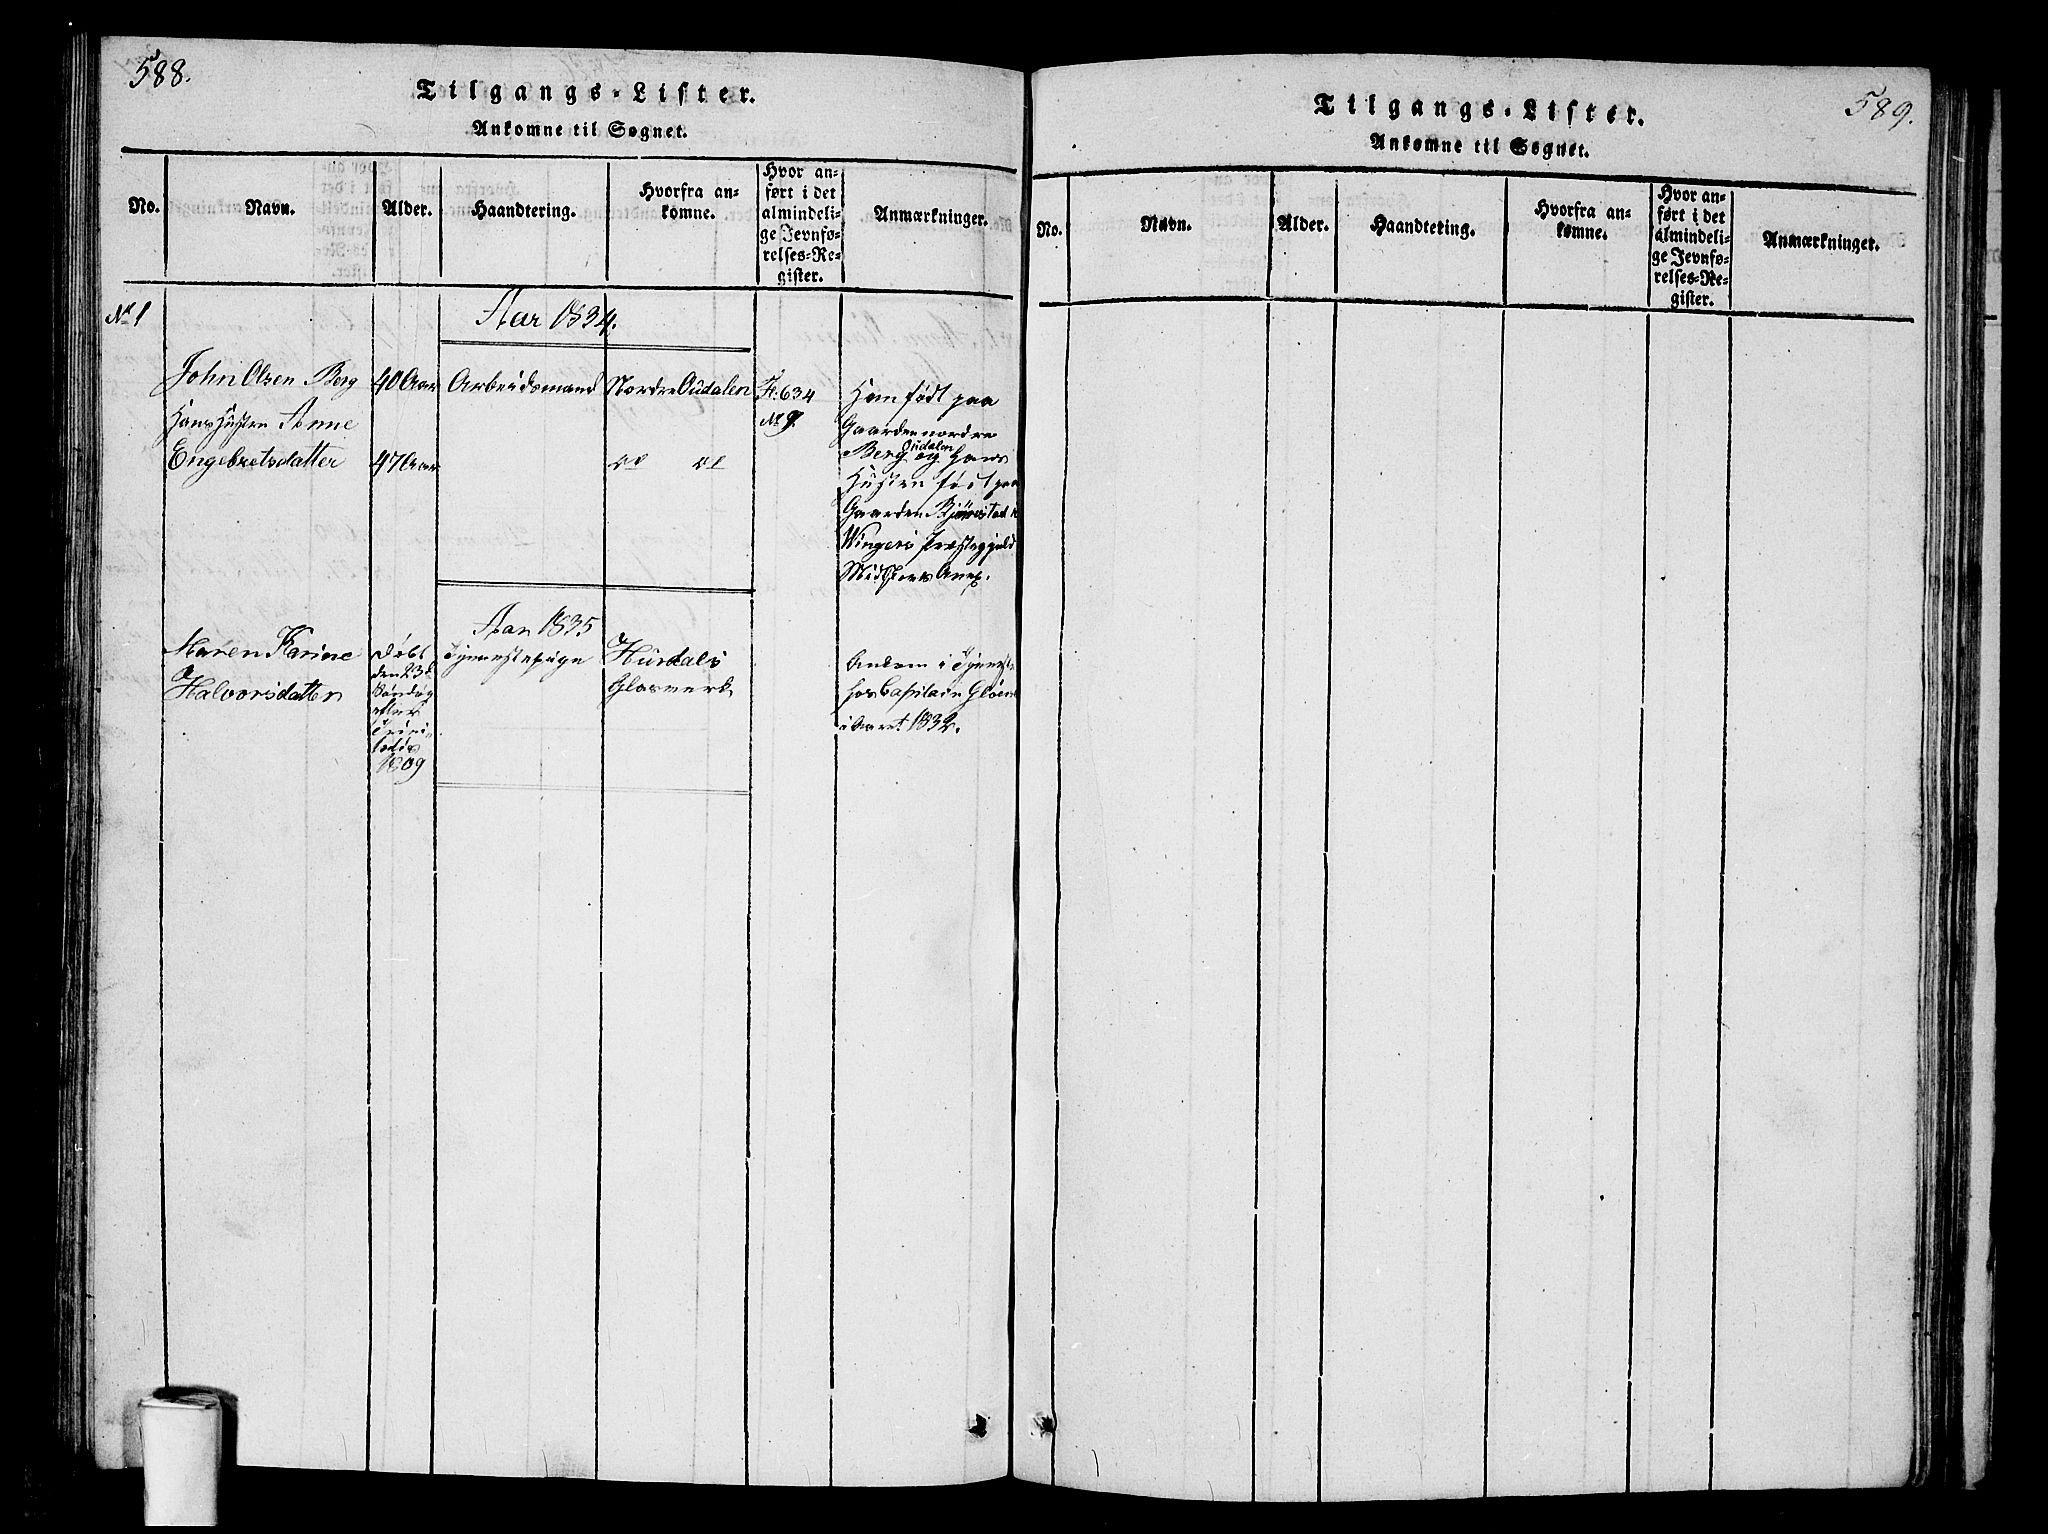 588.
Tilgangs-Lister.
Ankomne til Sognet.
No. Navn. Alder. Haandtering. Hvorfra ankomne. Hvor anført i det almindelige Jevnførelses-Register. Anmærkninger.
No 1
Aar 1834.
John Olsen Berg 40 Aar Arbeidsmand Nordre Oudalen F: 634
No 9.
Hans Hustru Anne
Engebretsdatter 47 Aar do do
Ham født paa
Gaarden nordre
Berg Oudalen og Hans
Hustru født paa
Gaarden Bjørnstad i
Wingers Præstegjeld
Midskovs Anex.
Aar 1835
Maren Karine
Halvorsdatter
Døbt
den 23de
Søndag
efter
Trini-
tatis
1809
Tjenestepige
Hurdals
Glasverk
Ankom i Tjeneste
hos Capitain
i Aaret 1832.
589.
Tilgangs-Lister.
Ankomne til Sognet.
No. Navn. Alder. Haandtering. Hvorfra ankomne. Hvor anført i det almindelige Jevnførelses-Register. Anmærkninger.